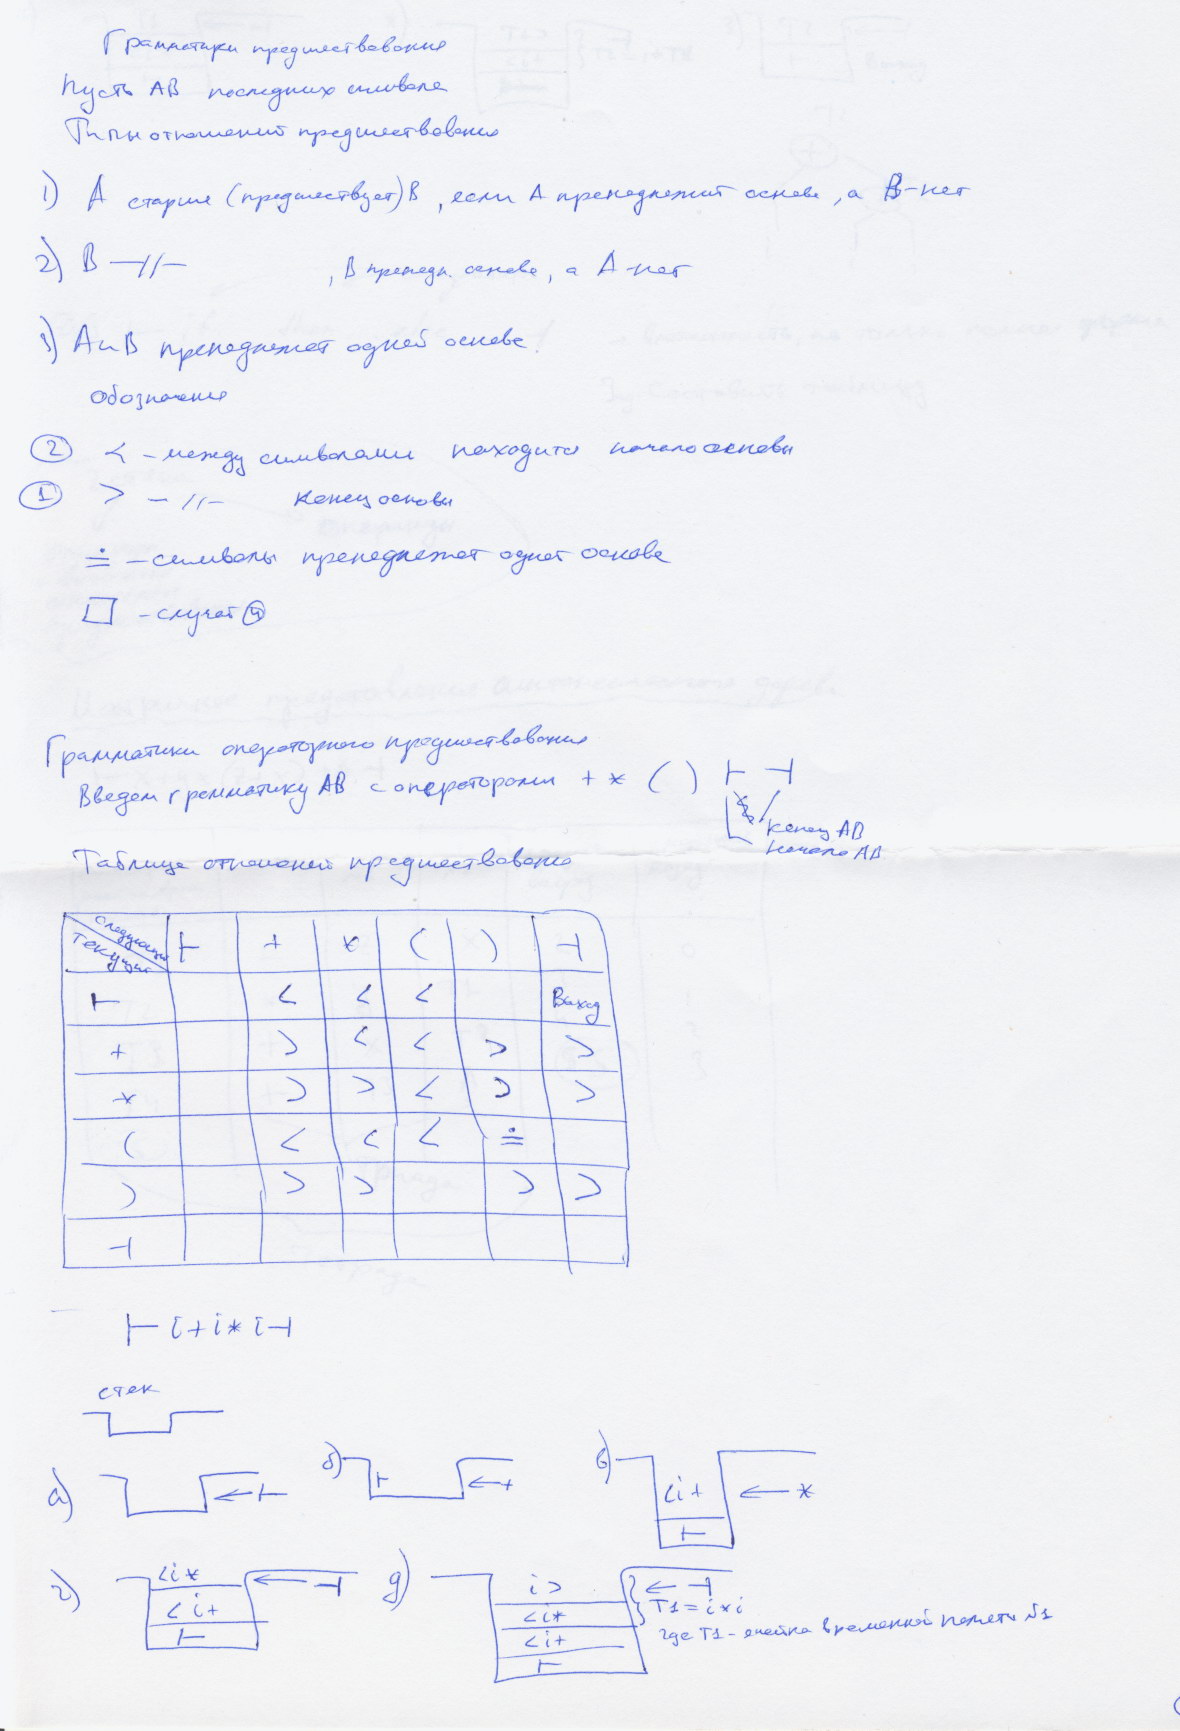 Грамматики предшествования
Пусть AB последних символа
Типы отношений предшествования
1) A старше (предшествует) B, если A принадлежит основе, а B - нет
2) B —//— , B принадл. основе, а A - нет
3) A и B принадлежат одной основе.
Обозначение
② < - между символами находится начало основы
① > —//— конец основы
≐ - символы принадлежат одной основе
□ - случай ④
Грамматики операторного предшествования
Введем грамматику АВ с операторами + * ( ) ⊢ ⊣
конец АВ
начало АВ
Таблица отношений предшествования
следующий
текущий ⊢ + * ( ) ⊣
⊢ < < < Выход
+ > < < > >
* > > < > >
( < < < ≐
) > > > >
⊣
⊢ i + i * i ⊣
стек
а) ← ⊢
б) ⊢ ← +
в) <i+ ← *
⊢
г) <i* ← ⊣
<i+
⊢
д) i> ← ⊣
<i* T1 = i * i
<i+ где T1 - ячейка временной памяти №1
⊢